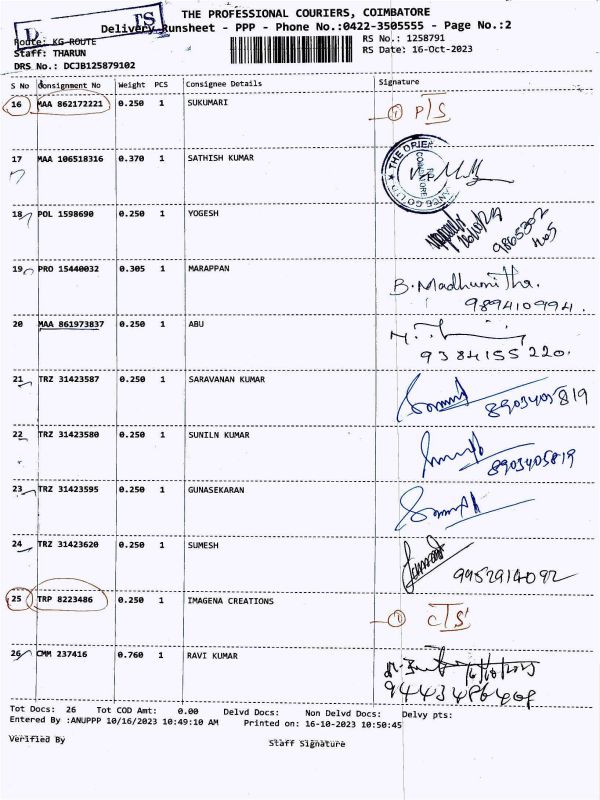 THE PROFESSIONAL COURIERS, COIMBATORE
Delivery Runsheet - PPP - Phone No.:0422-3505555 - Page No.:2
Route: KG-ROUTE
RS No.: 1258791
Staff: THARUN
RS Date: 16-Oct-2023
DRS No.: DCJB125879102
S No Consignment No Weight PCS Consignee Details Signature
16 MAA 862172221 0.250 1 SUKUMARI
17 MAA 106518316 0.370 1 SATHISH KUMAR
18 POL 1598690 0.250 1 YOGESH
19 PRO 15440032 0.305 1 MARAPPAN B.Madhumitha.
9894109941.
20 MAA 861973837 0.250 1 ABU
9384155220.
21 TRZ 31423587 0.250 1 SARAVANAN KUMAR
8903405819
22 TRZ 31423580 0.250 1 SUNILN KUMAR
8903405819
23 TRZ 31423595 0.250 1 GUNASEKARAN
24 TRZ 31423620 0.250 1 SUMESH
9952914092
25 TRP 8223486 0.250 1 IMAGENA CREATIONS
26 CMM 237416 0.760 1 RAVI KUMAR
Tot Docs: 26 Tot COD Amt: 0.00 Delvd Docs: Non Delvd Docs: Delvy pts:
Entered By :ANUPPP 10/16/2023 10:49:10 AM Printed on: 16-10-2023 10:50:45
Verified By
Staff Signature